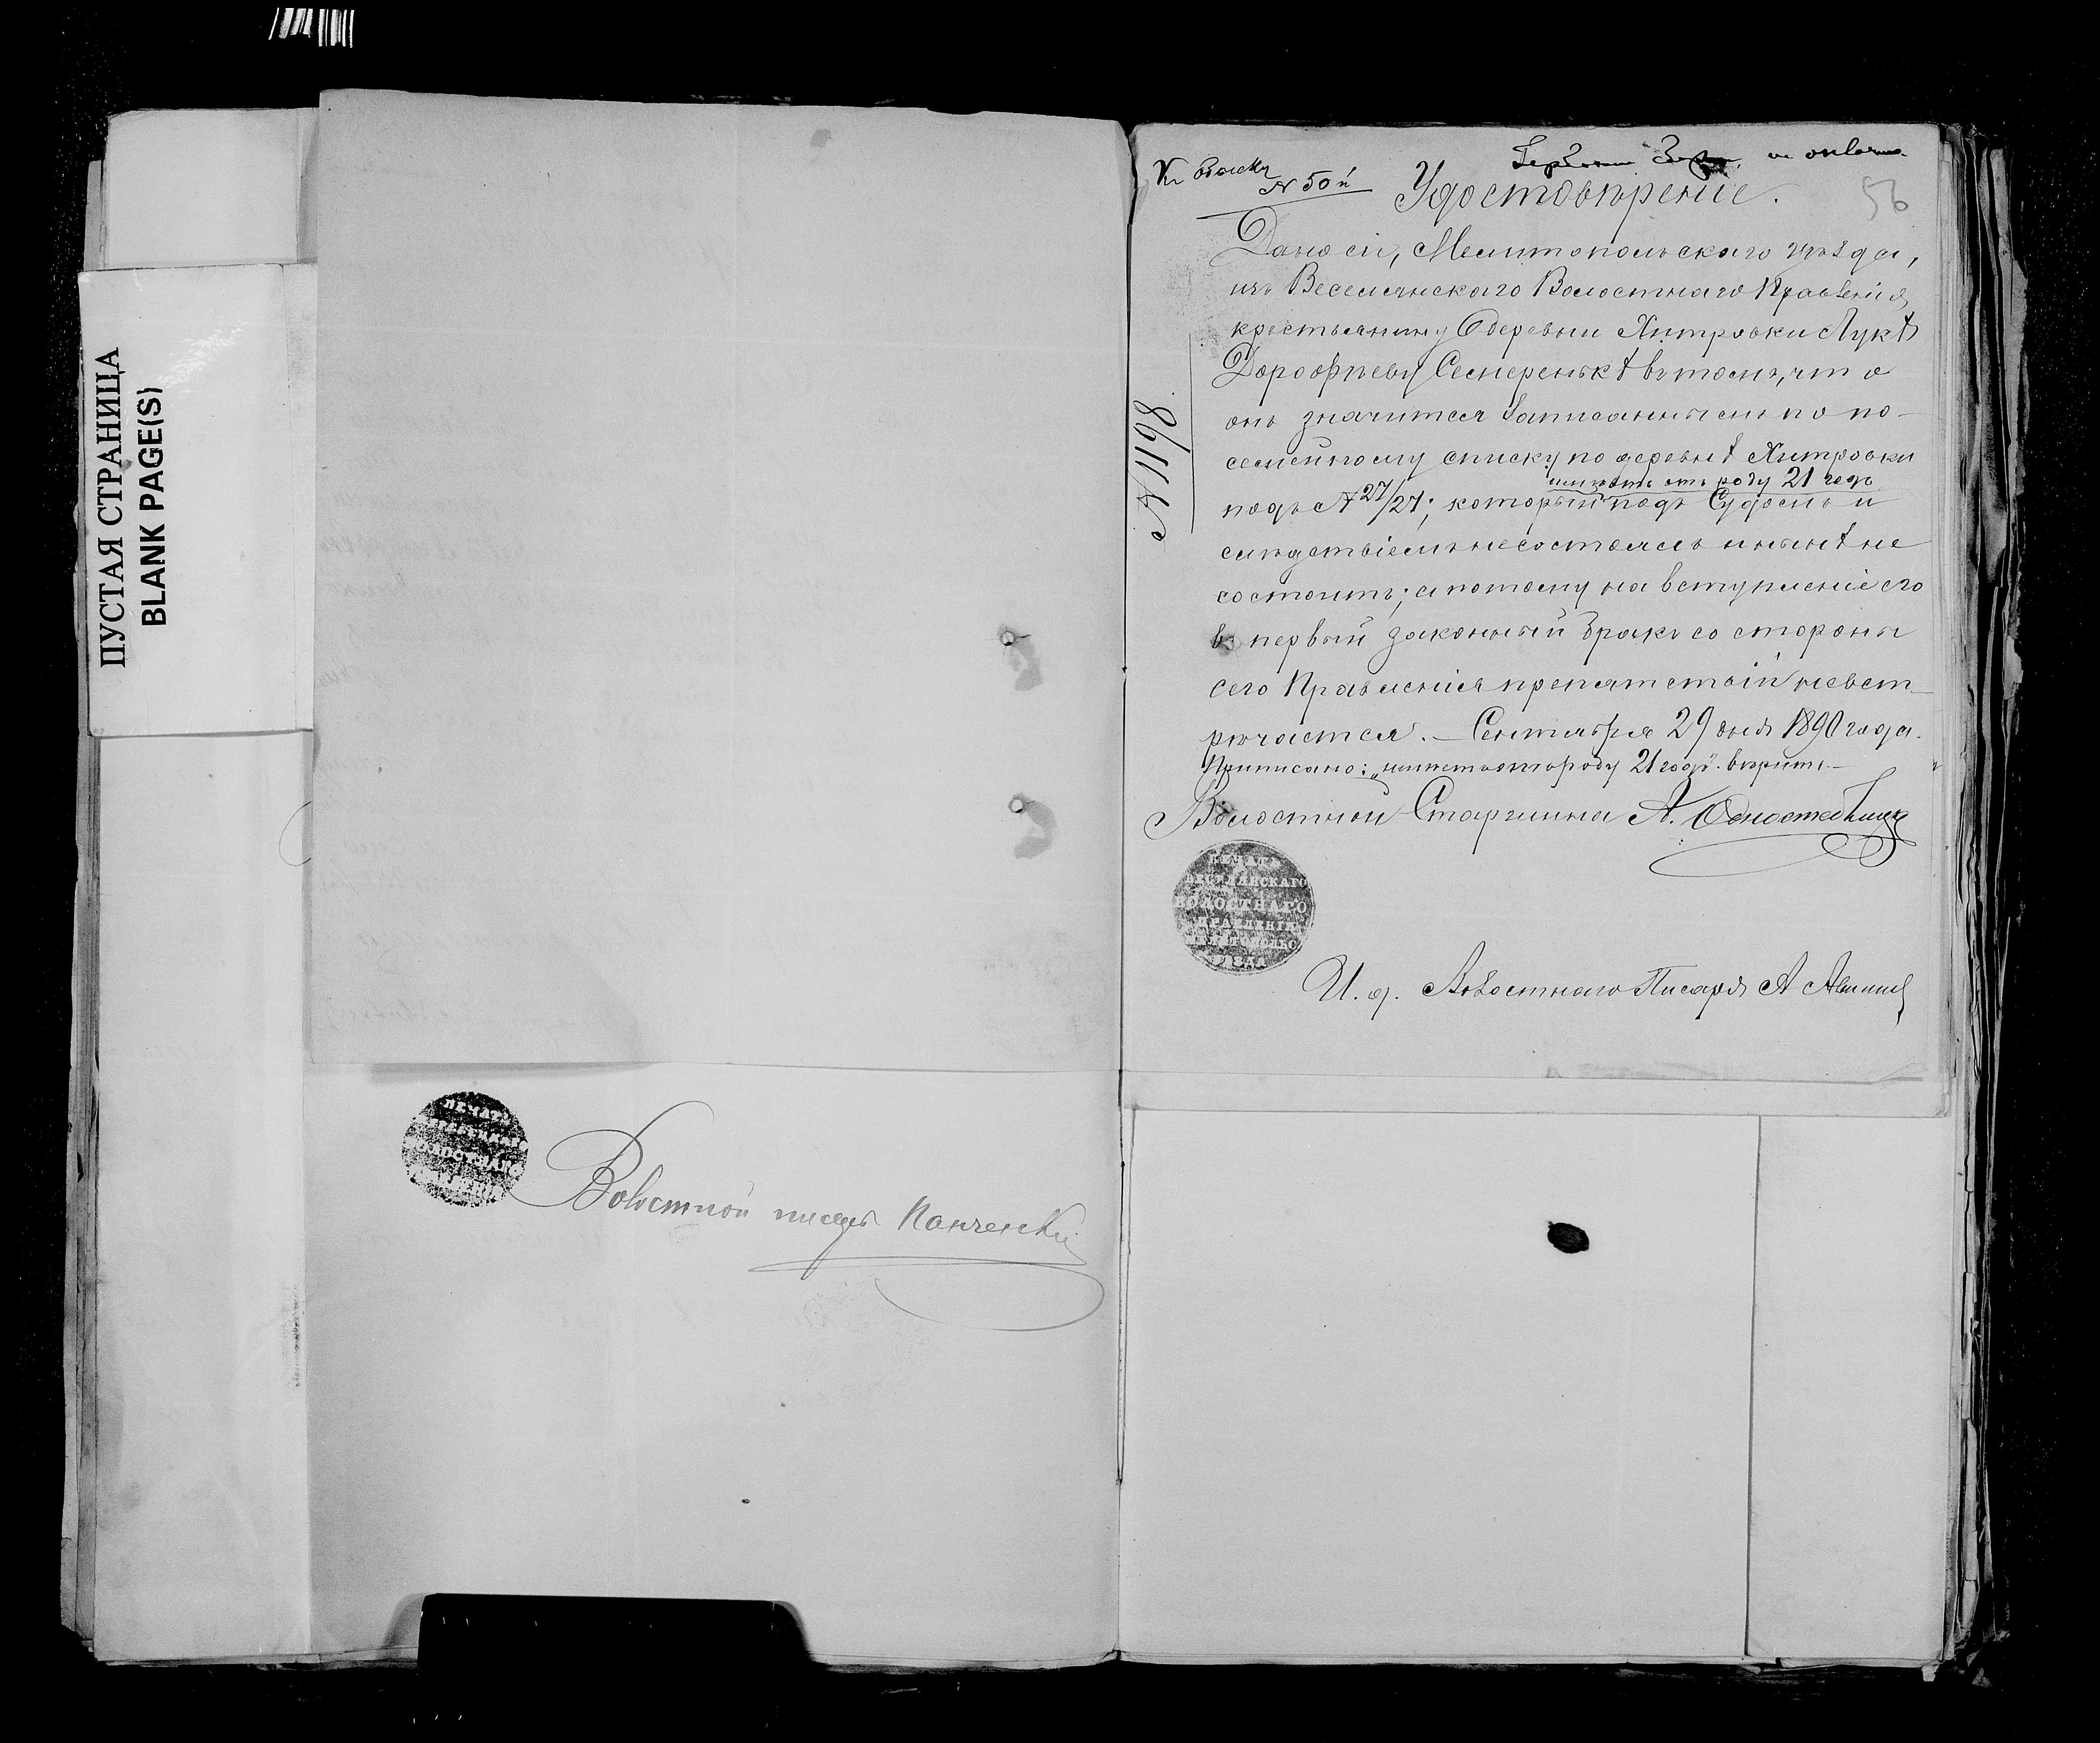 ПУСТАЯ СТРАНИЦА
BLANK PAGE(S)
Къ обыску
№ 50й
56
Удостовѣреніе.
Дано сіе, Мелитопольскаго уѣзда,
изъ Веселянскаго Волостнаго Правленія,
крестьянину деревни Хитровки Лукѣ
Дорофѣеву въ томъ, что
онъ значится записаннымъ по по-
семейному списку по деревнѣ Хитровки
имѣетъ отъ роду 21 годъ
подъ № 27/27; который подъ Судомъ и
слѣдствіемъ несостоялъ и нынѣ не
состоитъ; а потому на вступленіе его
въ первый законный бракъ со стороны
сего Правленія препятствій невст-
рѣчается. — Сентября 29 дня 1890 года.
Приписано: „имѣетъ отъ роду 21 годъ". вѣрить. —
Волостной Старшина А.
№ 1198
ПЕЧАТЬ
ВЕСЕЛЯНСКАГО
ВОЛОСТНАГО
ПРАВЛЕНІЯ
МЕЛИТОПОЛЬС
УѢЗДА
И. д. Волостнаго Писаря А
ПЕЧАТЬ
ВОЛОСТНАГО
Волостной писарь Панченко